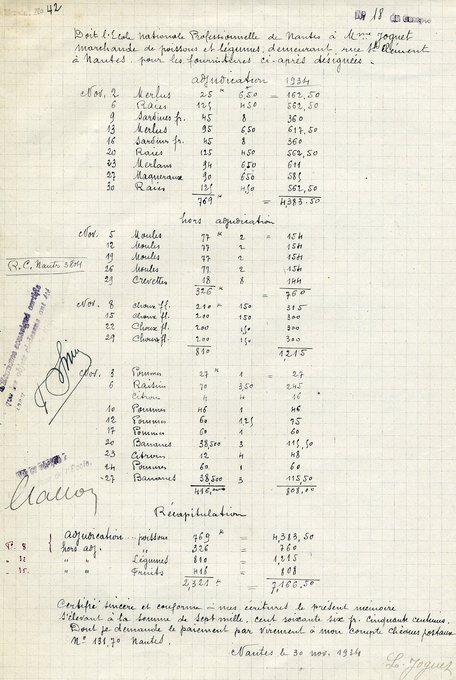 No 42
No 18 du Compte
Doit l'Ecole nationale Professionnelle de Nantes à Mme Joguet
marchande de poissons et légumes, demeurant, rue St Clément
à Nantes. pour les fournitures ci-après désignées.
adjudication 1934
Nov. 2 Merlus 25 K 6,50 = 162,50
6 Raies 125 4 50 562,50
9 Sardines fr. 45 8 360
13 Merlus 95 6 50 617,50
16 Sardines fr. 45 8 360
20 Raies 125 4 50 562,50
23 Merlans 94 6 50 611
27 Maquereaux 90 6 50 585
30 Raies 125 4,50 562,50
769 K = 4383.50
hors adjudication
Nov. 5 Moules 77 K 2 = 154
12 Moules 77 2 154
19 Moules 77 2 154
R.C. Nantes 3804
26 Moules 77 2 154
29 Crevettes 18 8 144
326 K = 760
Nov. 8 choux fl. 210 K 1 50 315
15 choux fl. 200 1 50 300
22 Choux fl. 200 1,50 300
29 Choux fl. 200 1,50 300
810 1,215
Nov. 3 Pommes 27 K 1 = 27
6 Raisin 70 3,50 245
Citron 4 4 16
10 Pommes 46 1 46
12 Pommes 60 1,25 75
17 Pommes 60 1 60
20 Bananes 38,500 3 115,50
23 Citrons 12 4 48
24 Pommes 60 1 60
27 Bananes 38,500 3 115,50
416,000 808,00
Récapitulation
adjudication poissons 769 K = 4,383,50
hors adj. " 326 = 760
" " Légumes 810 = 1,215
" " Fruits 416 = 808
2,321 K = 7,166,50
Certifié sincère et conforme à mes écritures le présent mémoire
s'élevant à la somme de Sept mille, cent soixante six fr. Cinquante centimes.
Dont je demande le paiement par virement à mon compte chèques postaux
No 131,70 Nantes
Nantes le 30 nov. 1934
L. Joguet